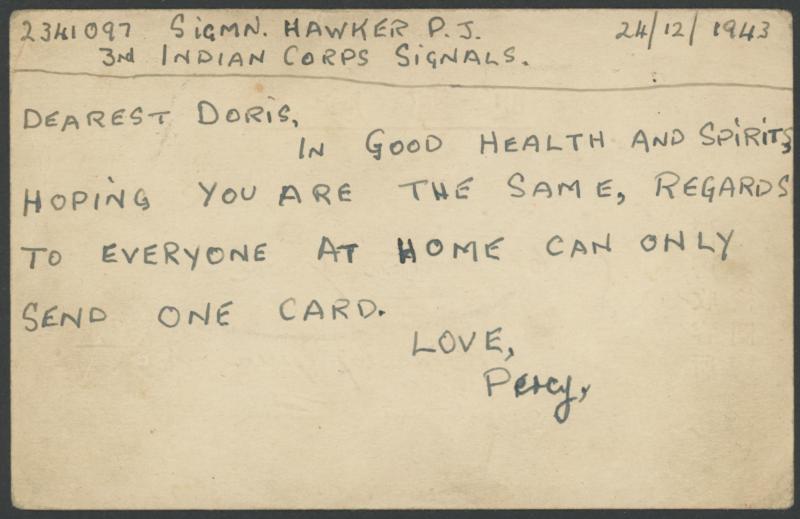 2341097 SIGMN. HAWKER P.J. 24/12/1943
3rd INDIAN CORPS SIGNALS.
DEAREST DORIS,
IN GOOD HEALTH AND SPIRITS,
HOPING YOU ARE THE SAME, REGARDS
TO EVERYONE AT HOME CAN ONLY
SEND ONE CARD.
LOVE,
Percy,